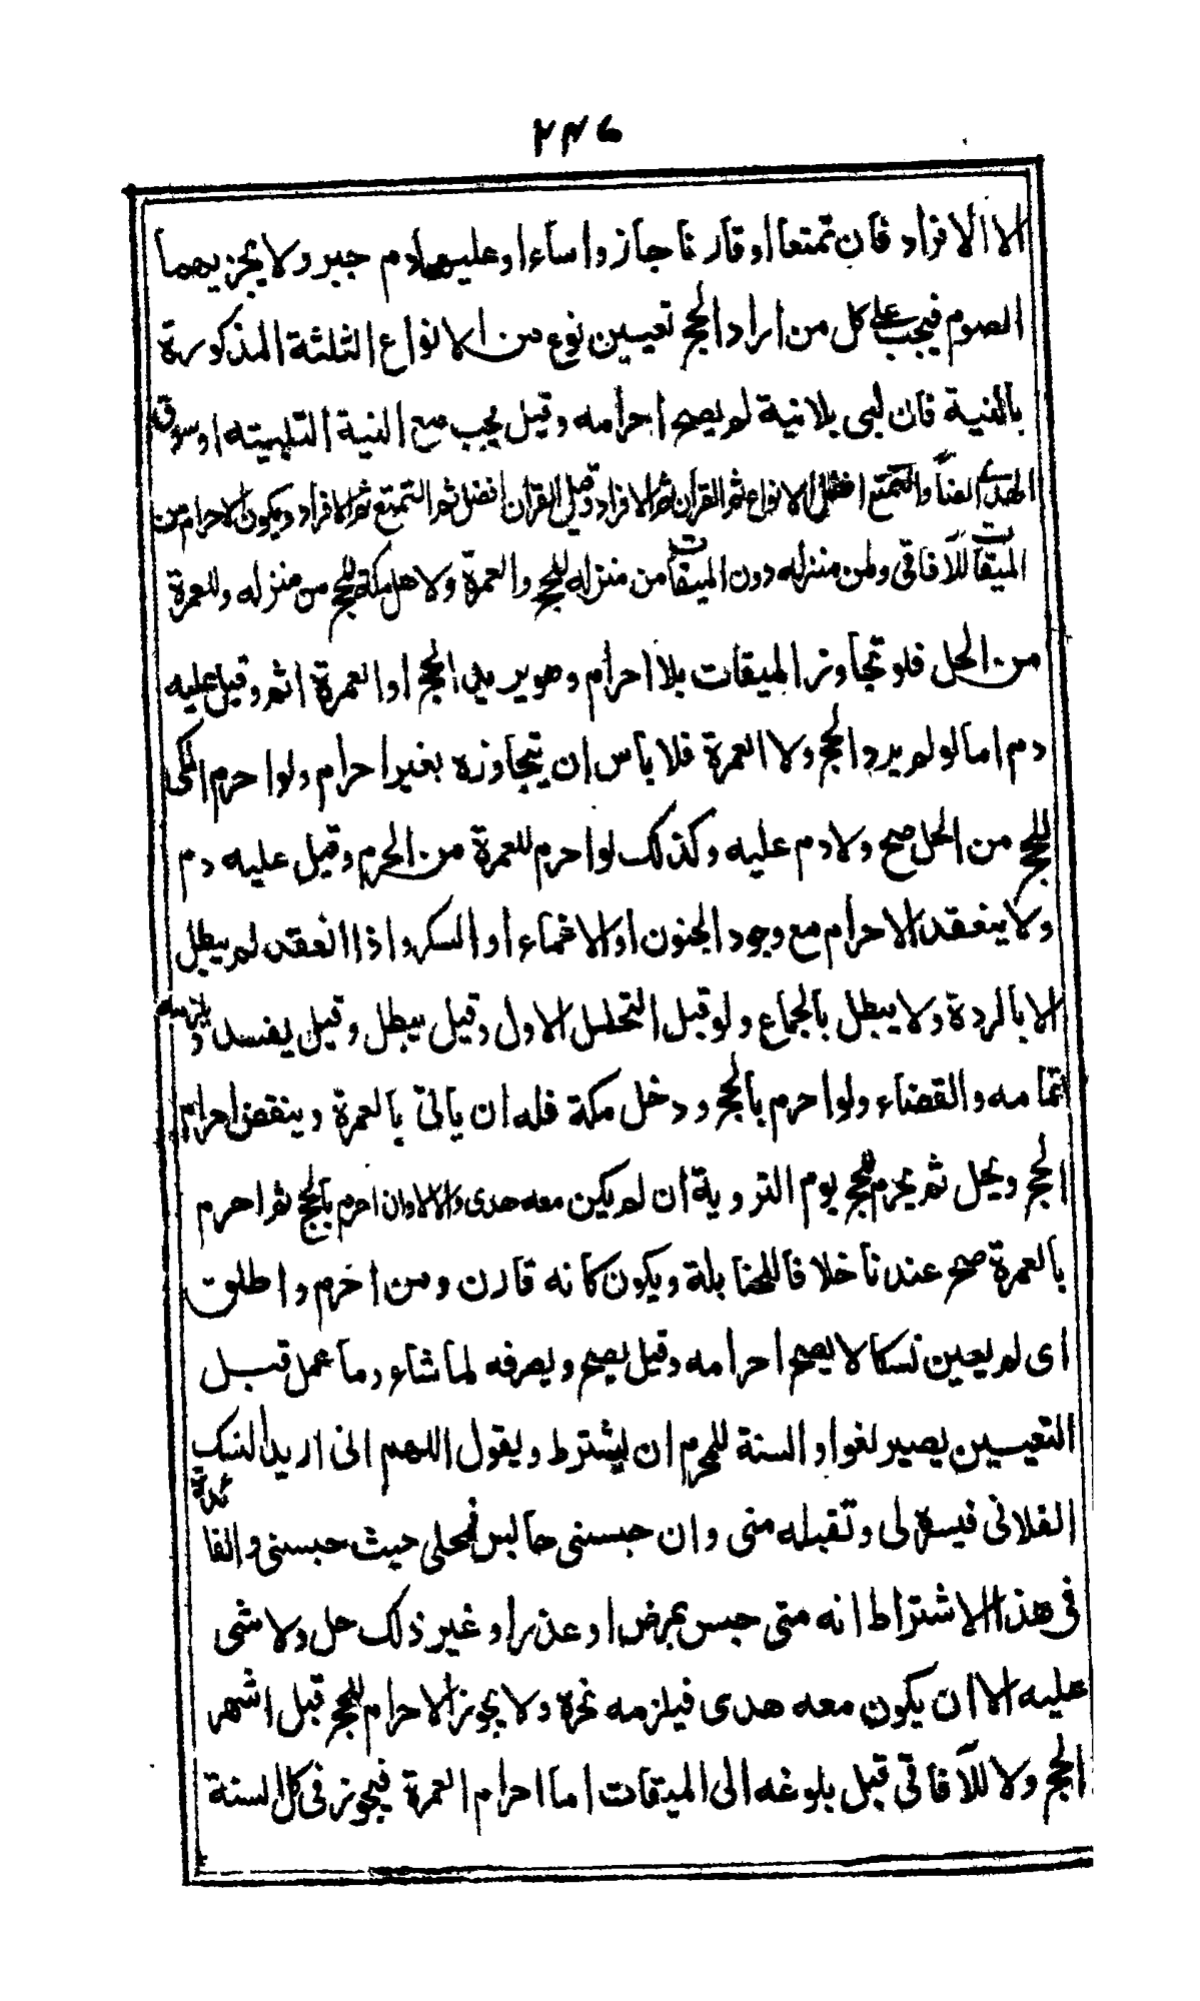 ٢٤٦
الا الافراد فان تمتعا او قارنا جاز واساءا وعليهما دم جبر ولا يجزيهما
الصوم فيجب على كل من اراد الحج تعيين نوع من الانواع الثلثة المذكورة
بالنية فان لبى بلا نية لم يصح احرامه وقيل يجب مع النية التلبيته او سوق
الهدى ايضاً والتمتع افضل الانواع ثم القران ثم الافراد وقيل القران افضل ثم التمتع ثم الافراد ويكون الاحرام من
الميقات للآفاقى ولمن منزله دون الميقات من منزله للحج والعمرة ولاهل مكة للحج من منزله وللعمرة
من الحل فلو تجاوز الميقات بلا احرام وهو يريد الحج او العمرة اثم وقيل عليه
دم اما لو لم يرد الحج ولا العمرة فلا باس ان يتجاوزه بغير احرام ولو احرم المكى
للحج من الحل صح ولا دم عليه وكذلك لو احرم للعمرة من الحرم وقيل عليه دم
ولا ينعقد الاحرام مع وجود الجنون او الاغماء او السكر واذا انعقد لم يبطل
الا بالردة ولا يبطل بالجماع ولو قبل التحلل الاول وقيل يبطل وقيل يفسد ويلزمه
اتمامه والقضاء ولو احرم بالحج ودخل مكة فله ان ياتى بالعمرة وينقض احرام
الحج ويحل ثم يحرم للحج يوم التروية ان لم يكن معه هدى والا لا وان احرم بالحج ثم احرم
بالعمرة صح عندنا خلافا للحنابلة ويكون كانه قارن ومن احرم واطلق
اى لم يعين نسكا لا يصح احرامه وقيل يصح ويصرفه لما شاء وما عمل قبل
التعيين يصير لغوا والسنة للمحرم ان يشترط ويقول اللهم انى اريد النسك
الفلانى فيسره لى وتقبله منى وان حبسنى حابس فمحلى حيث حبسنى والفائدة
فى هذا الاشتراط انه متى حبس بمرض او عذر او غير ذلك حل ولا شى
عليه الا ان يكون معه هدى فيلزمه نحره ولا يجوز الاحرام للحج قبل اشهر
الحج ولا للآفاقى قبل بلوغه الى الميقات اما احرام العمرة فيجوز فى كل السنة